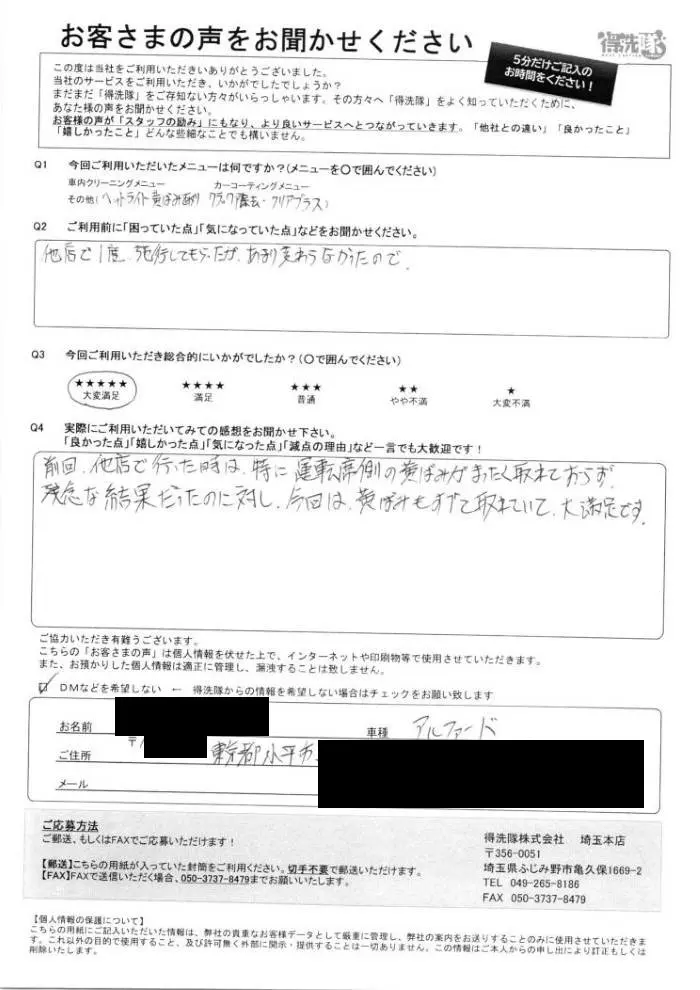 お客さまの声をお聞かせください
得洗隊
5分だけご記入の
お時間をください!
この度は当社をご利用いただきいありがとうございました。
当社のサービスをご利用いただき、いかがでしたでしょうか?
まだまだ「得洗隊」をご存知ない方々がいらっしゃいます。その方々へ「得洗隊」をよく知っていただくために、
あなた様の声をお聞かせください。
お客様の声が「スタッフの励み」にもなり、より良いサービスへとつながっていきます。「他社との違い」「良かったこと」
「嬉しかったこと」どんな些細なことでも構いません。
Q1 今回ご利用いただいたメニューは何ですか?(メニューを〇で囲んでください)
車内クリーニングメニュー カーコーティングメニュー
その他(ヘッドライト黄ばみあり クラック除去・クリアプラス)
Q2 ご利用前に「困っていた点」「気になっていた点」などをお聞かせください。
他店で1度、施行してもらったが、あまり変わらなかったので。
Q3 今回ご利用いただき総合的にいかがでしたか?(〇で囲んでください)
★★★★★ ★★★★ ★★★ ★★ ★
大変満足 満足 普通 やや不満 大変不満
Q4 実際にご利用いただいてみての感想をお聞かせ下さい。
「良かった点」「嬉しかった点」「気になった点」「減点の理由」など一言でも大歓迎です!
前回、他店で行った時は、特に運転席側の黄ばみがまったく取れておらず、
残念な結果だったのに対し、今回は、黄ばみもすべて取れていて、大満足です。
ご協力いただき有難うございます。
こちらの「お客さまの声」は個人情報を伏せた上で、インターネットや印刷物等で使用させていただきます。
また、お預かりした個人情報は適正に管理し、漏洩することは致しません。
DMなどを希望しない ← 得洗隊からの情報を希望しない場合はチェックをお願い致します
お名前 車種 アルファード
〒
ご住所 東京都小平市
メール
ご応募方法
ご郵送、もしくはFAXでご応募いただけます!
【郵送】こちらの用紙が入っていた封筒をご利用ください。切手不要で郵送いただけます。
【FAX】FAXで送信いただく場合、050-3737-8479までお願いいたします。
得洗隊株式会社 埼玉本店
〒356-0051
埼玉県ふじみ野市亀久保1669-2
TEL 049-265-8186
FAX 050-3737-8479
【個人情報の保護について】
こちらの用紙にご記入いただいた情報は、弊社の貴重なお客様データとして厳重に管理し、弊社の案内をお送りすることのみに使用させていただきま
す。これ以外の目的で使用すること、及び許可無く外部に開示・提供することは一切ありません。この情報はご本人からの申し出により訂正もしくは
削除いたします。